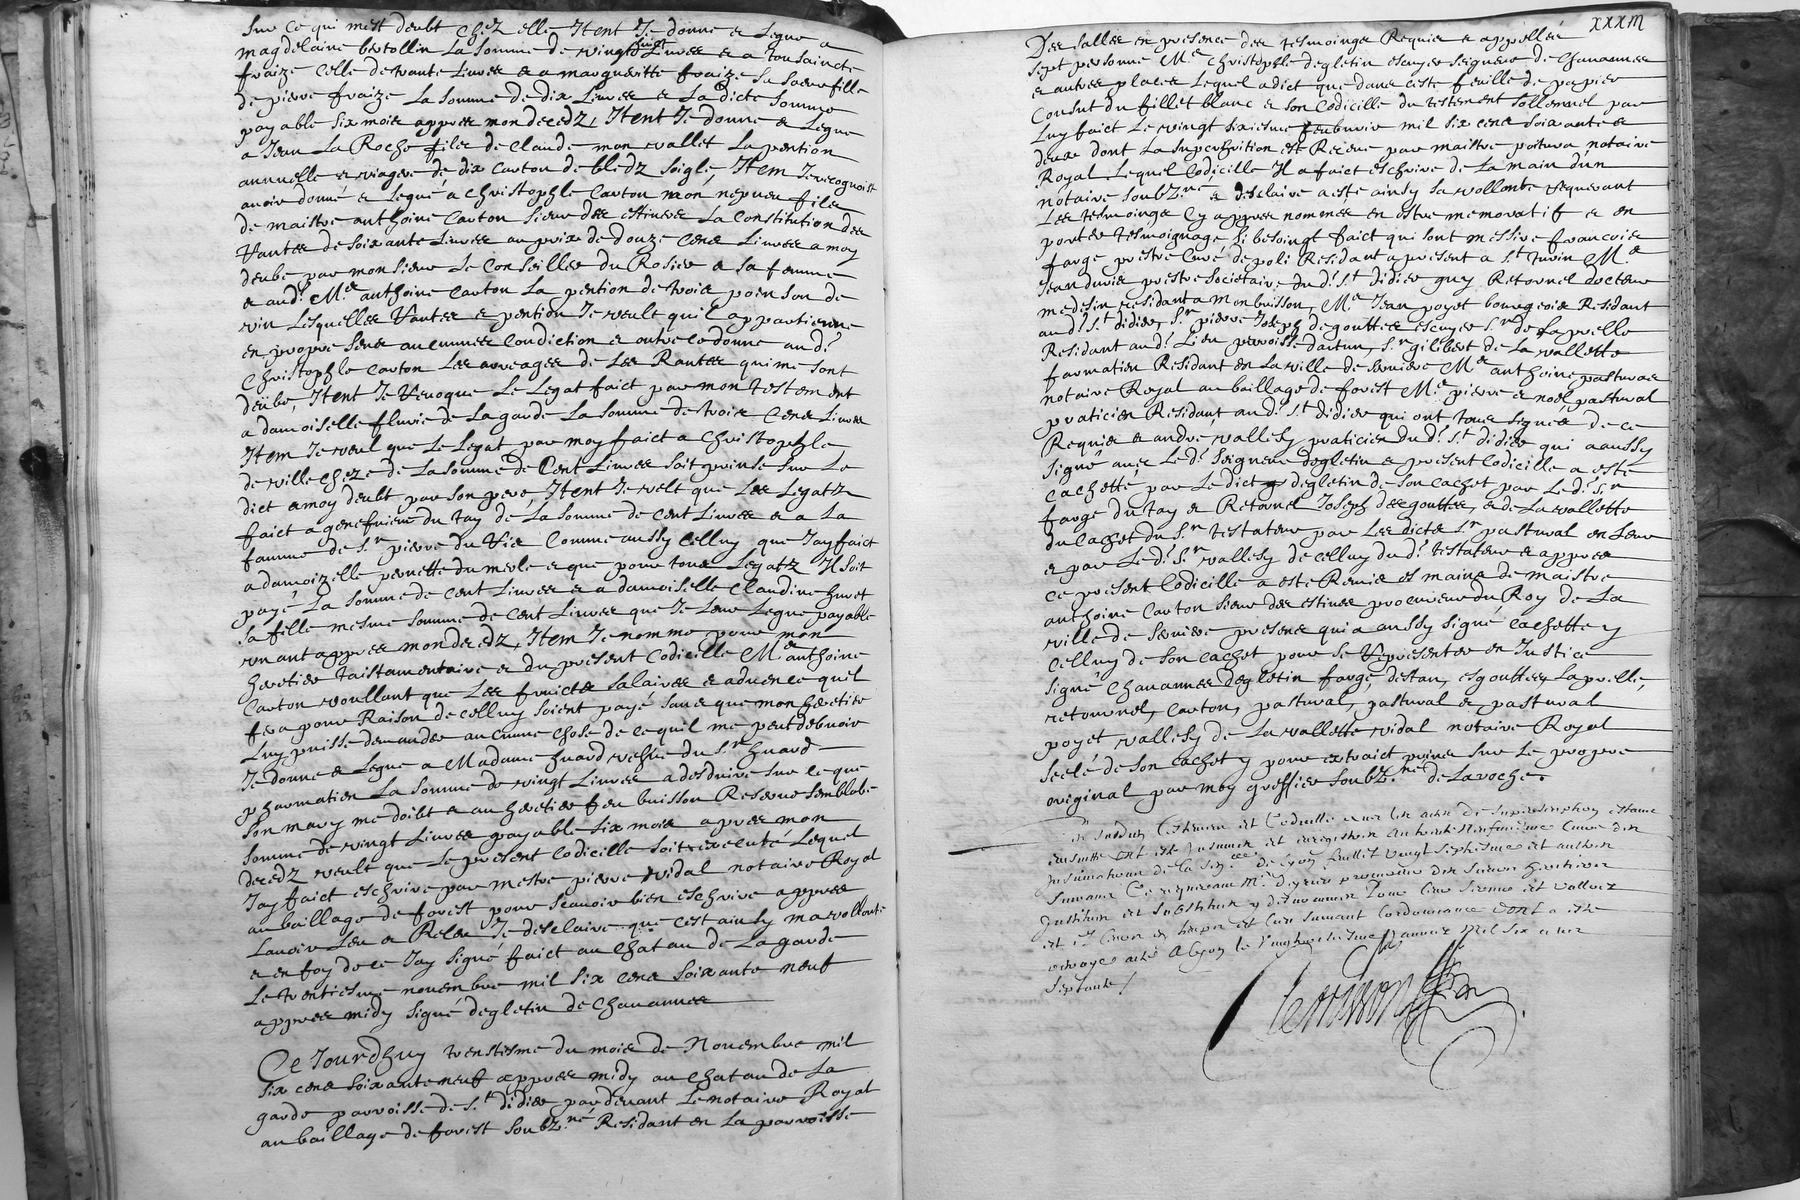 Sur ce qui mest deubt chez elle Jtent Je donne e Legue a
magdelaine bertollin La somme de vingt huict Livres e a tousaincte
fraize celle de trante Livres e a margueritte fraize sa soeur fille
de pierre fraize La somme de dix Livres e La dicte somme
payable six mois appres mon decedz, Jtent Je donne e Legue
a Jean La Roche fils de Claude mon vallet La pention
annuelle e viagere de dix carton de bledz soigle, Jtem Je recognoist
avoir donné e Legué a Christophle Carton mon nepveu fils
de maistre anthoine Carton sieur des estiues La constitution des
Rantes de soixante Livres au prix de douze cens Livres a moy
deube par monsieur Le Conseiller du Rosier e sa femme
e aud. Me anthoine Carton La pention de trois poinson de
vin Lesquelles Rantes e pention Je veult quil appartienne
en propre sens aucunes condiction e oultre ce donne aud.
Christophle Carton Les arreages de Les Rantes qui me sont
deübe, Jtent Je Revoque Le Legat faict par mon testement
a damoiselle fleurie de La garde La somme de trois cens Livres
Jtem Je veul que Le Legat par moy faict a Christophle
de ville cheze de La somme de Cent Livres soit prinse sur Le
dict a moy deubt par son pere, Jtent Je velt que Les Legatz
faict a genefvieve du tay de La somme de cent Livres e a La
famme de Sr pierre du Rie Comme aussy celluy que Jay faict
a damoizelle pernette du merle e que pour tous Legatz Jl soit
payé La somme de cent Livres e a damoiselle Claudine huet
sa fille mesme somme de cent Livres que Je Leur Legue payable
un ant appres mon decedz, Jtem Je nomme pour mon
heretier taistamentaire e du present Codicille Me anthoine
Carton voullant que Les fruictz salaires e advence quil
fera pour Raison de celluy soient payé sans que mon heretier
Luy puisse demander aucune chose de ce quil me peut debvoir
Je donne e Legue a Madame huard vefve du Sr huard
pharmatien La somme de vingt Livres a desduire sur ce que
son mary me doibt e au heretier feu buisson Reserve semblable
somme de vingt Livres payable six mois apres mon
decedz veult que Le present Codicille soit executé Lequel
Jay faict escrire par mestre pierre vidal notaire Royal
au baillage de forest pour scavoir bien escrire appres
Lavoir Leu e Releu Je desclaire que cest ainsy ma vollonté
e en foy de ce Jay signé faict au chatau de La garde
Le trentiesme novembre mil six cens soixante neuf
appres midy signé degletin de Chavannes
Ce Jourdhuy trentisme du mois de Novembre mil
six cens soixante neuf appres midy au chatau de La
garde parroisse de St didier par devant Le notaire Royal
au baillage de forest soubz.né Residant en La parroisse
XXXIII
Des salles en presence des tesmoings Requis e appellés
sept personne Me Christophle degletin escuyer seigneur de Chavannes
e autres places Lequel a dict que dans ceste feuille de papier
Consut du fillet blanc e son Codicille du testement sollennel par
Luy faict Le vingt sixiesme febvrier mil six cens soixante e
deux dont La superscrition est Receue par maistre poitra notaire
Royal. Lequel Codicille Jl a faict escrire de La main dun
notaire soubz.né e desclaire a esté ainsy sa vollonté Requerant
Les tesmoings cy appres nommes en estre memoratif e en
porter tesmoignage si besoingt faict qui sont messire francois
farge prestre curé de poli Residant a present a St Jurin Me
Jean durie prestre societaire dud. St didier guy Retornel docteur
medesin residant a monbuisson, Me Jean poyet bourgeois Residant
aud. St didier, Sr pierre Joseph degouttes escuyer Sr de Laprelle
Residant aud. Lieu perroisse dartun, Sr gilibert de La vallette
farmatien Residant en La ville de serviere Me anthoine pastural
notaire Royal au baillage de forest Me pierre e noel pastural
praticien Residant aud. St didier qui ont tous signés de ce
Requis e andré vallesy praticien dud. St didier qui a aussy
signé avec Led. seigneur degletin e present Codicille a esté
cachetté par Ledict degletin de son cachet par Led. Sr
farge du tay e Retornel Joseph desgouttes, e de La vallette
du cachet du Sr testateur par Les dicts Sr pastural en leur
e par Led. Sr vallesy de celluy dud. testateur e appres
ce present Codicille a esté Remis es mains de maistre
anthoine Carton sieur des estiues procureur du Roy de La
ville de serviere present qui a aussy signé cachetté y
celluy de son cachet pour Le Representer en Justice
signé Chavannes degletin farge, destan, esgouttes Laprelle,
retournel, Carton, pastural, pastural e pastural
poyet vallesy de La vallette vidal notaire Royal
scelé de son cachet y pour extraict prins sur Le propre
original par moy greffier soubz.né de Laroche.
Le susdit testament et Codicille avec les actes de superscription estans
ensuitte ont esté Jnsinués et enregistrés au trente neufiesme livre des
Jnsinuations de la Senéc. de Lyon
Septante /